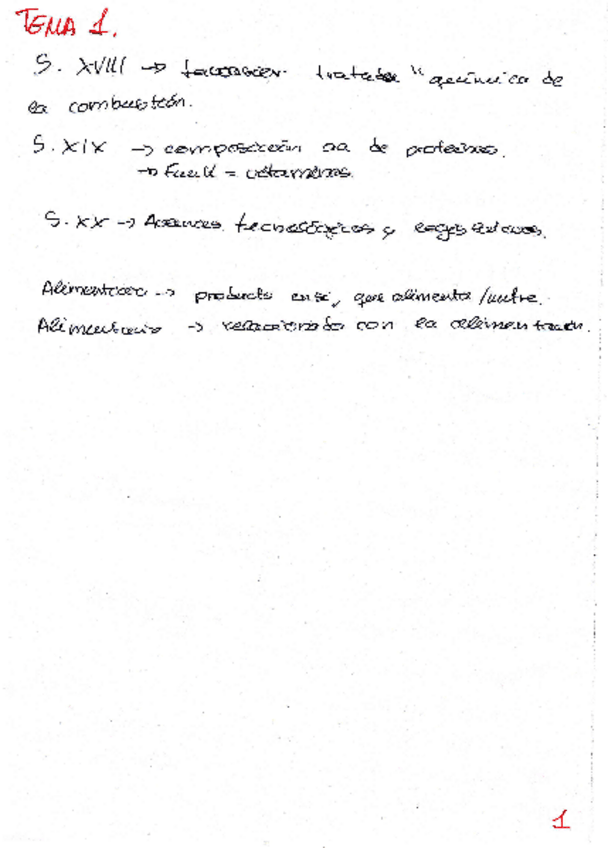 TEMA 1.
S. XVIII → tratado "química de
la combustión.
S. XIX → composición aa de proteínas.
→ Funk = vitaminas.
S. XX → Avances tecnológicos y legislativos.
→ producto en sí, que alimenta / nutre.
Alimentario → relacionado con la alimentación.
1